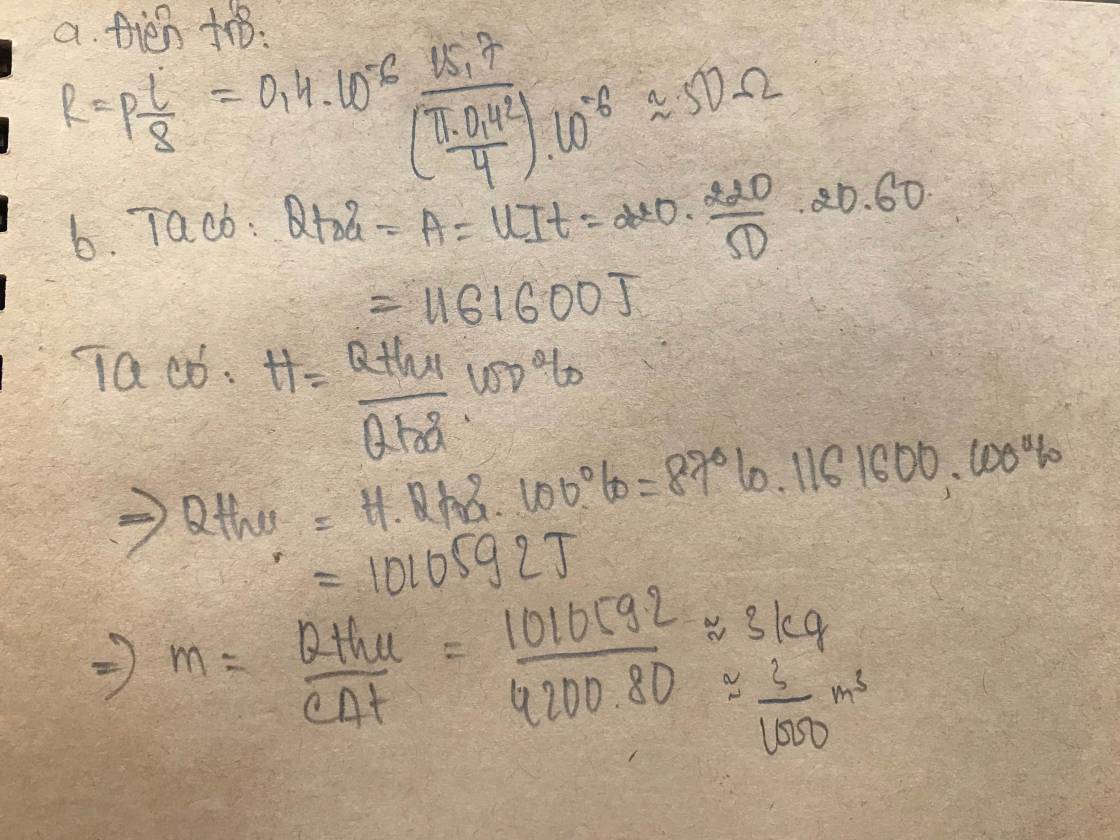 a. Điện trở:
R = ρ l/S = 0,4.10^-6 15,7/((π.0,4²/4).10^-6) ≈ 50 Ω
b. Ta có: Qtoả = A = UIt = 220. 220/50 .20.60
= 1161600J
Ta có: H = Qthu/Qtoả 100%
=> Qthu = H.Qtoả.100% = 87%.1161600.100%
= 1010592J
=> m = Qthu/CΔt = 1010592/4200.80 ≈ 3kg
≈ 3/1000 m³